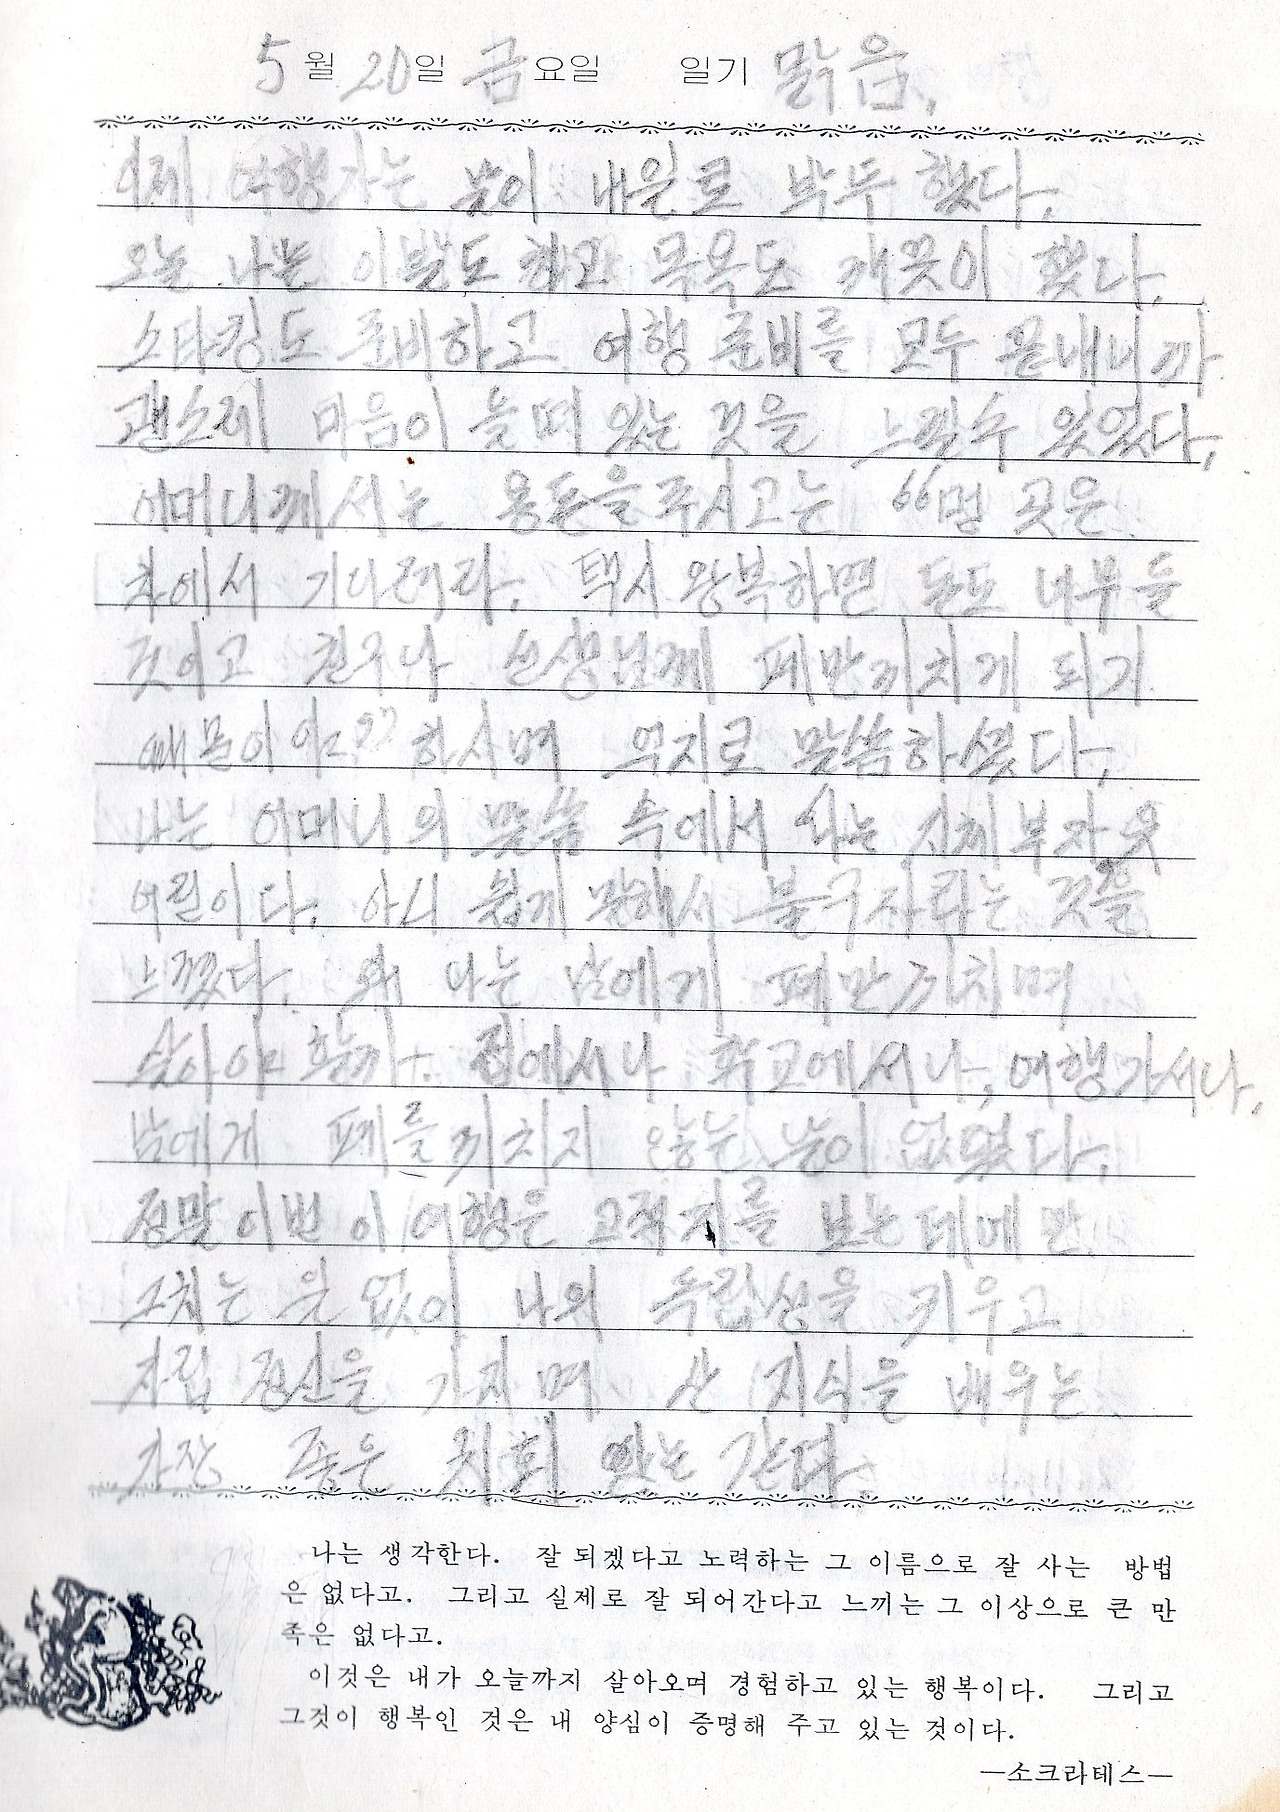 5월 20일 금요일 일기 맑음.
이제 여행가는 날이 내일로 박두 했다.
오늘 나는 이발도 하고 목욕도 깨끗이 했다.
스타킹도 준비하고 여행 준비를 모두 끝내니까
괜스레 마음이 들떠 있는 것을 느낄수 있었다.
어머니께서는 용돈을 주시고는 "먼 곳은
차에서 기다려라. 택시 왕복하면 돈도 너무들
것이고 친구나 선생님께 폐만끼치게 되기
때문이야" 하시며 억지로 말씀하셨다.
나는 어머니의 말씀 속에서 나는 지체부자유
어린이다. 아니 쉽게 말해서 불구자라는 것을
느꼈다. 왜 나는 남에게 폐만 끼치며
살아야 할까. 집에서나 학교에서나, 여행가서나.
남에게 폐를 끼치지 않는 날이 없었다.
정말 이번 이 여행은 고적지를 보는데에만
그치는 것 없이 나의 독립성을 키우고
자립 정신을 가지며 산 지식을 배우는
가장 좋은 기회 같다.
나는 생각한다. 잘 되겠다고 노력하는 그 이름으로 잘 사는 방법
은 없다고. 그리고 실제로 잘 되어간다고 느끼는 그 이상으로 큰 만
족은 없다고.
이것은 내가 오늘까지 살아오며 경험하고 있는 행복이다. 그리고
그것이 행복인 것은 내 양심이 증명해 주고 있는 것이다.
—소크라테스—